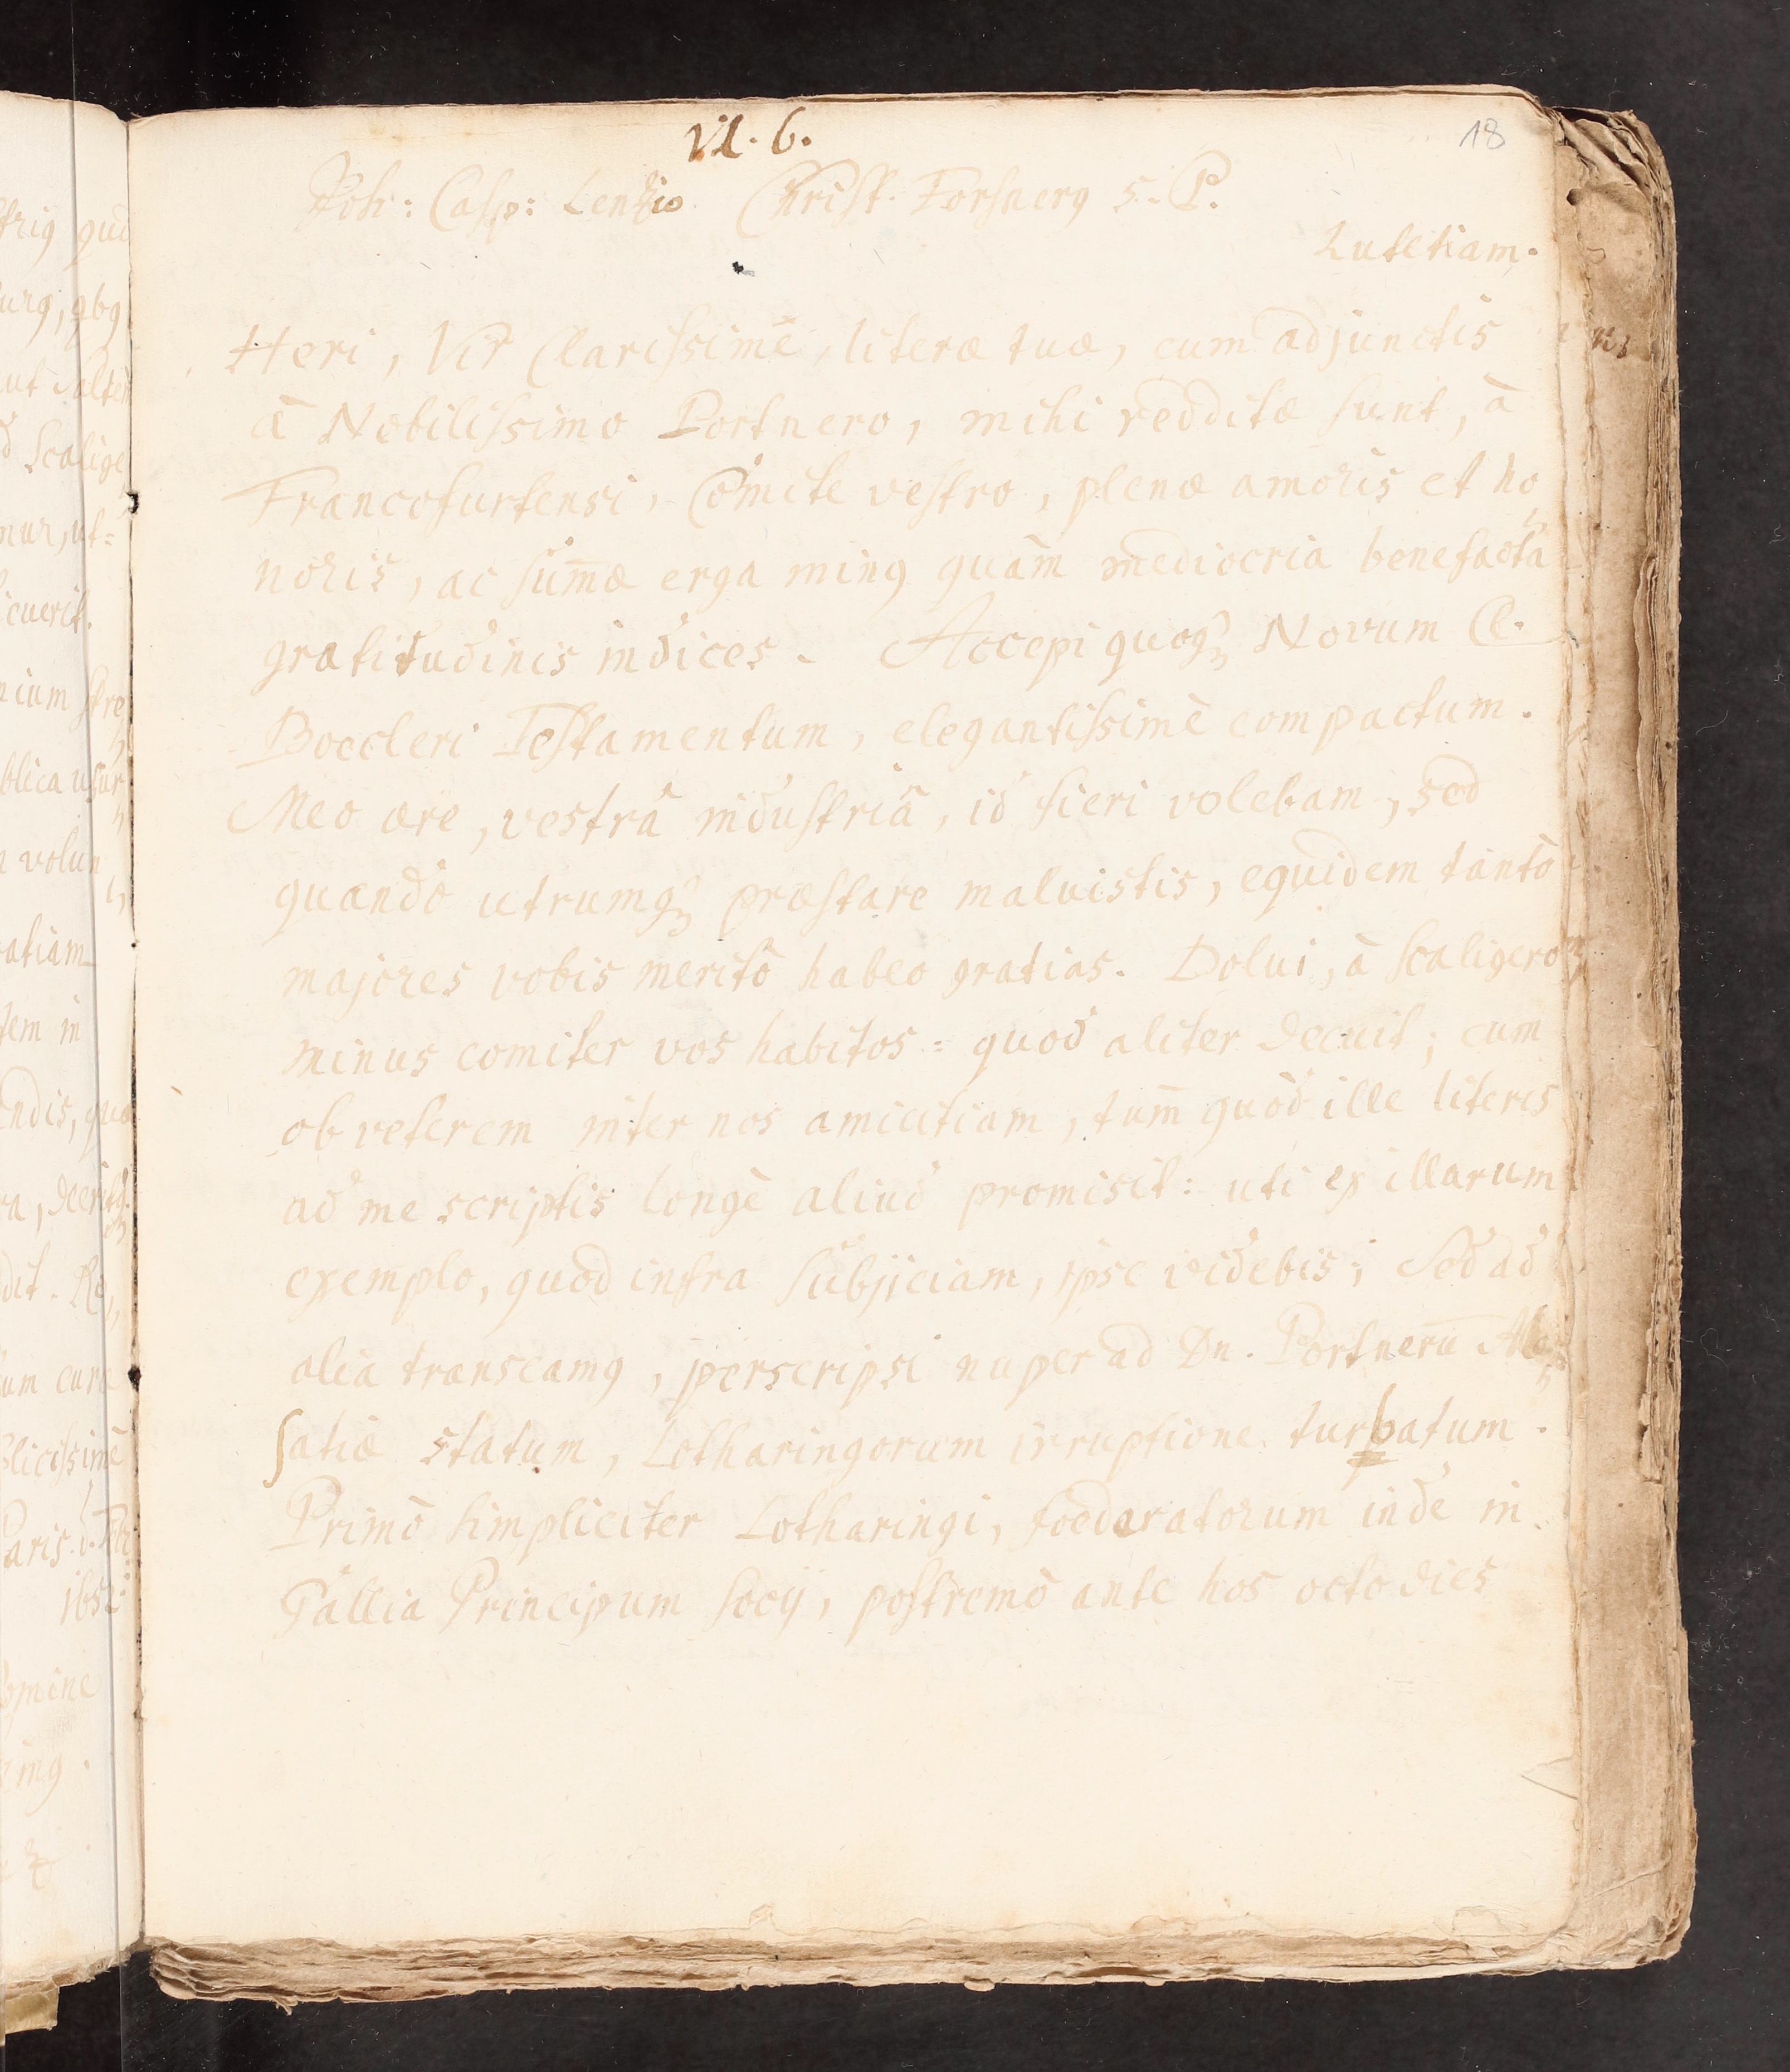 VI. 6.
18
Joh: Casp: Lentzio Christ. Forsnerꝯ S. P.
Lutetiam.
Heri, Vir Clarissimè, literæ tuæ, cum adjunctis
à Nobilissimo Portnero, mihi redditæ sunt, à
Francofurtensi, Comite vestro, plenæ amoris et ho
noris, ac sum̅æ erga minꝯ quàm mediocria benefacta
gratitudinis indices. Accepi quoqꝫ Novum Cl.
Boecleri Testamentum, elegantissimè compactum.
Meo ære, vestrâ industriâ, id fieri volebam, sed
quando utrumqꝫ præstare maluistis, equidem tantò
majores vobis meritò habeo gratias. Dolui, à Scaligero
minus comiter vos habitos: quod aliter decuit; cum
ob veterem inter nos amicitiam, tum̅ quòd ille literis
ad me scriptis longè aliud promisit: uti ex illarum
exemplo, quod infra subjiciam, ipse videbis; Sed ad
alia transeamꝯ, perscripsi nuper ad Dn. Portnerū Al
satiæ statum, Lotharingorum irruptione turbatum.
Primò simpliciter Lotharingi, foederatorum inde in
Gallia Principum socij, postremò ante hos octo dies